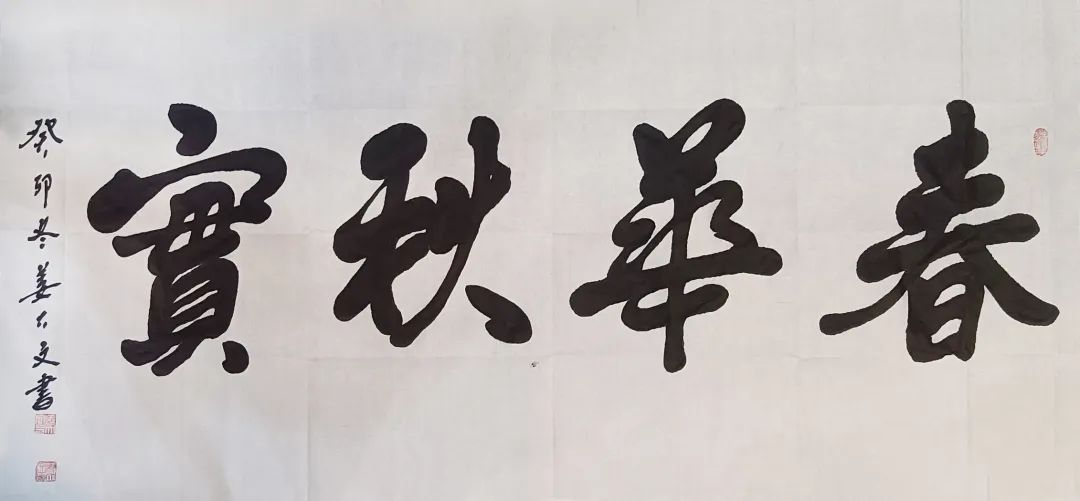 春華秋實
癸卯冬姜仁文書